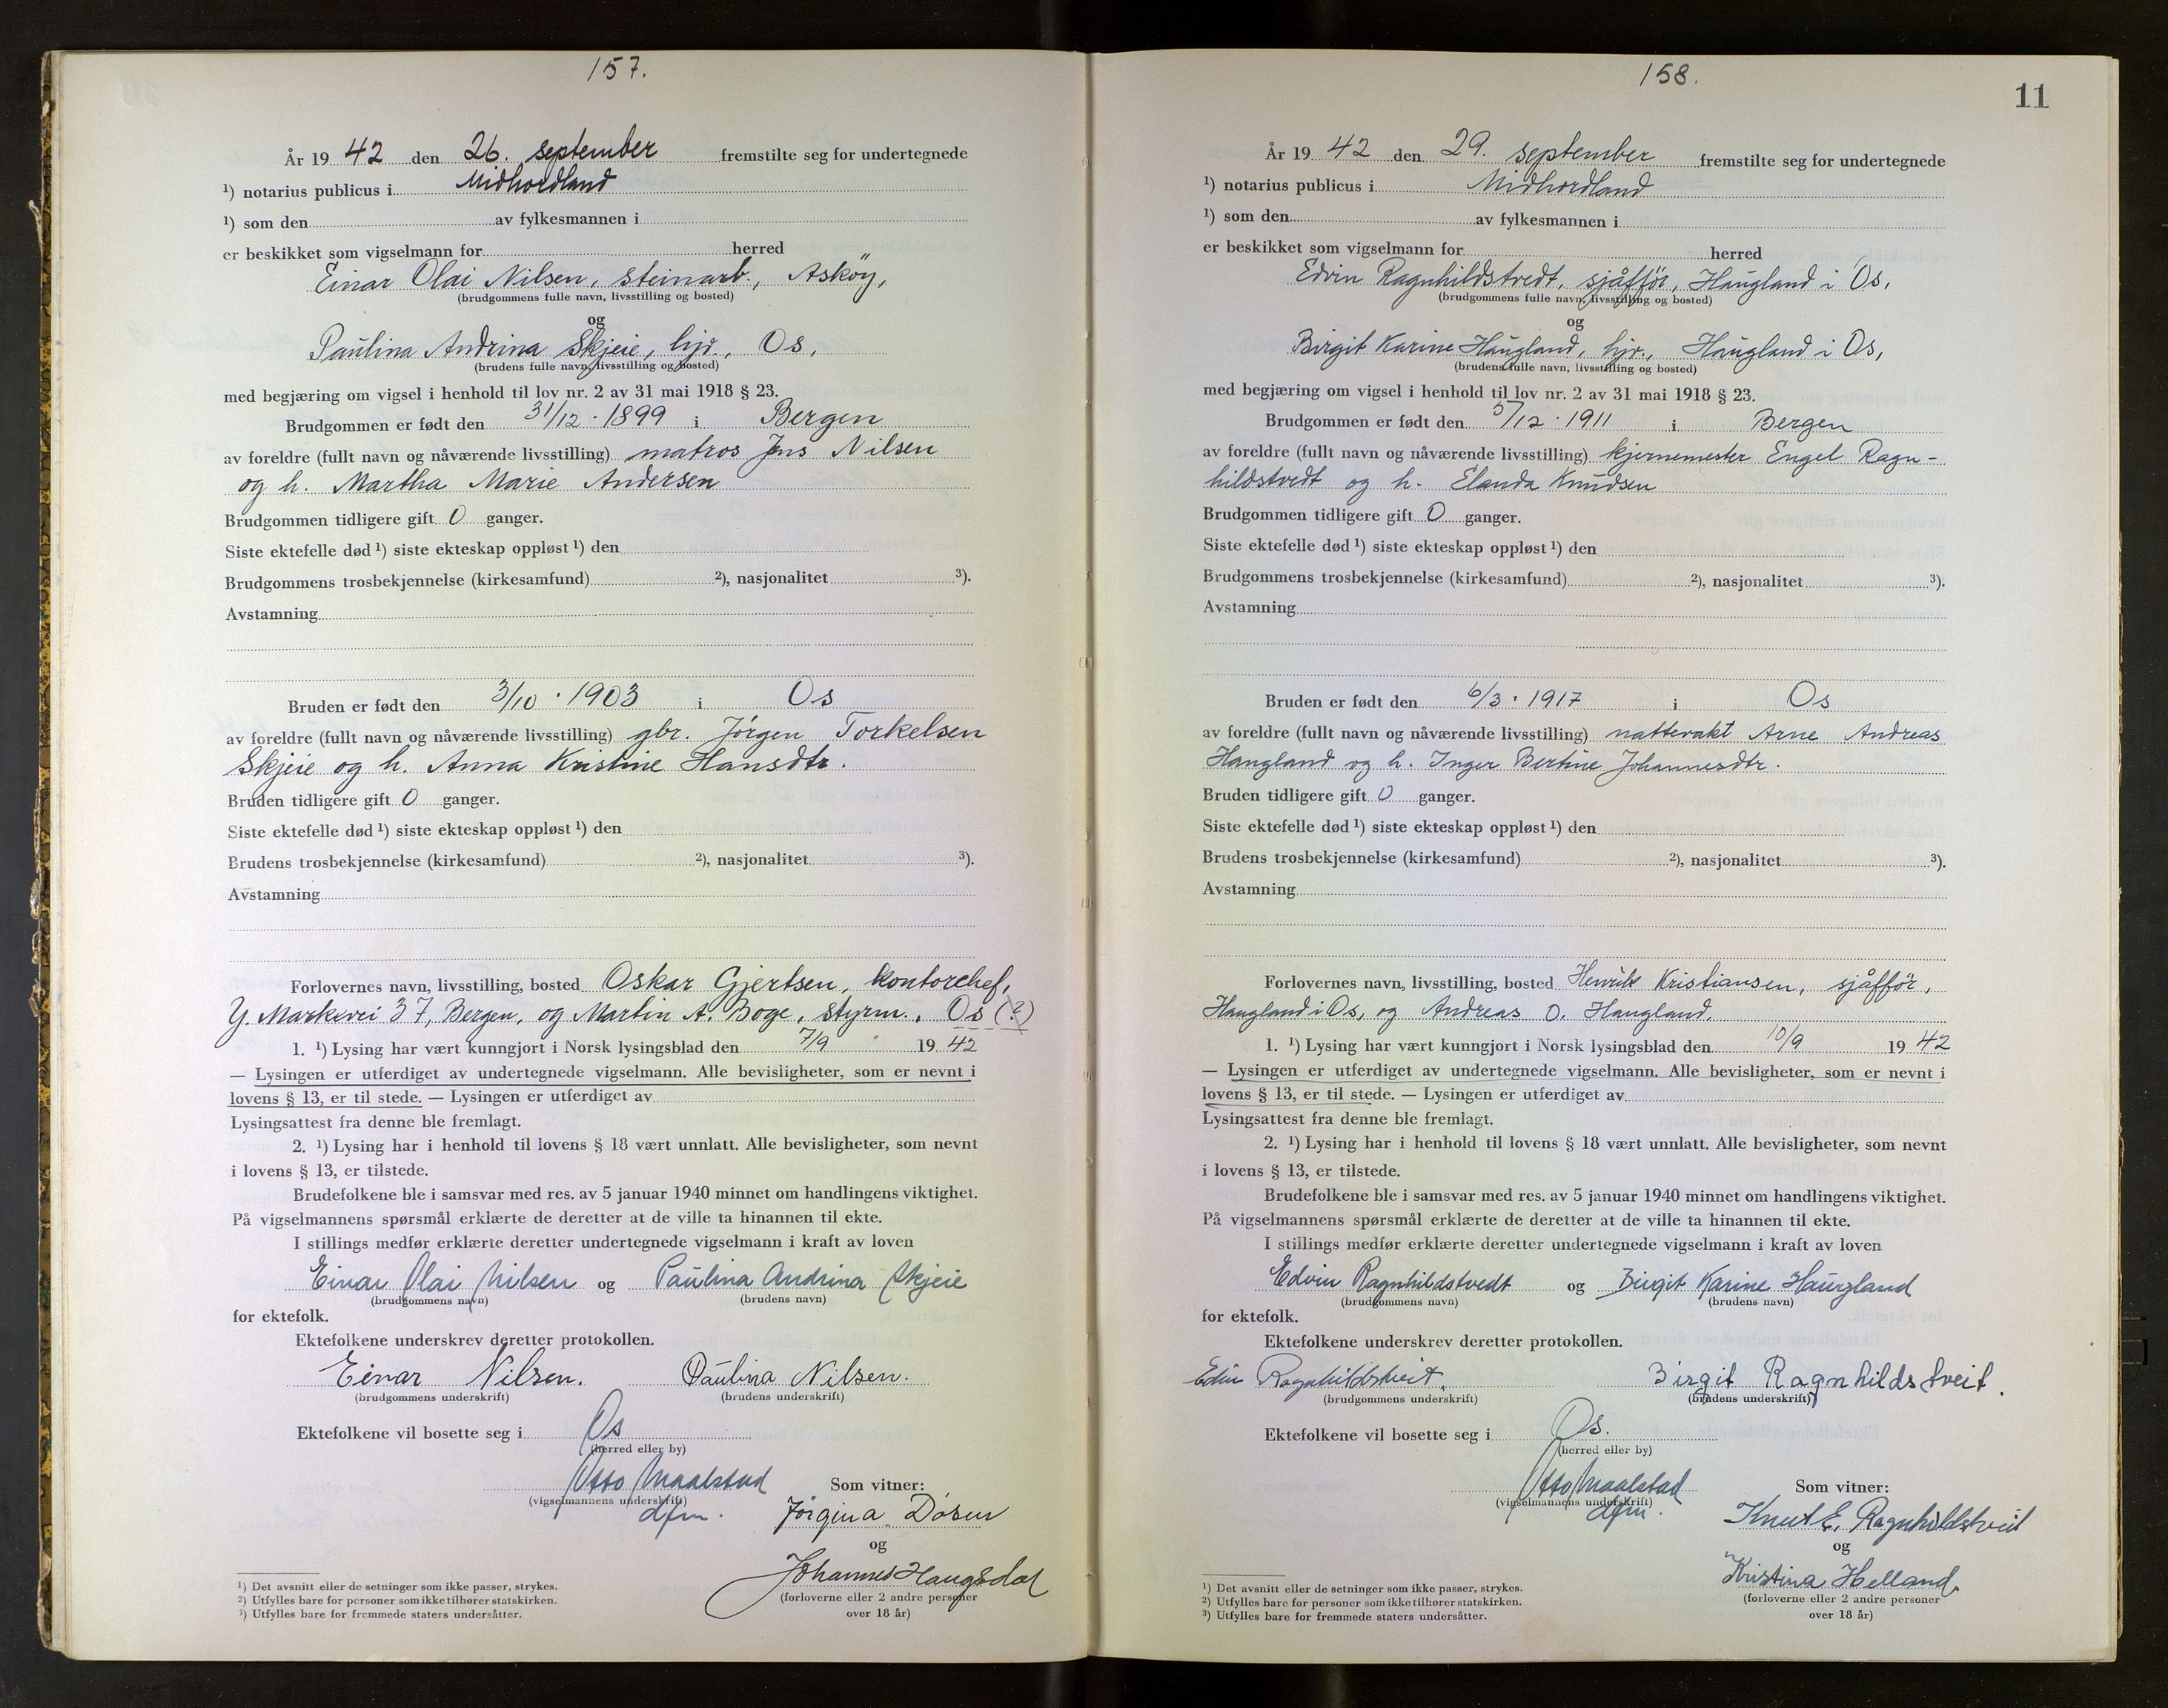 157.
År 19 42 den 26. september fremstilte seg for undertegnede
¹) notarius publicus i Midhordland
¹) som den av fylkesmannen i
er beskikket som vigselmann for herred
Einar Olai Nilsen, steinarb., Asköy,
(brudgommens fulle navn, livsstilling og bosted)
og
Paulina Andrina Skjeie, hjv., Os,
(brudens fulle navn, livsstilling og bosted)
med begjæring om vigsel i henhold til lov nr. 2 av 31 mai 1918 § 23.
Brudgommen er født den 31/12 . 1899 i Bergen
av foreldre (fullt navn og nåværende livsstilling) matros Jens Nilsen
og h. Martha Marie Andersen
Brudgommen tidligere gift 0 ganger.
Siste ektefelle død ¹) siste ekteskap oppløst ¹) den
Brudgommens trosbekjennelse (kirkesamfund) ²), nasjonalitet ³).
Avstamning
Bruden er født den 3/10 . 1903 i Os
av foreldre (fullt navn og nåværende livsstilling) gbr. Jörgen Torkelsen
Skjeie og h. Anna Kristine Hansdtr.
Bruden tidligere gift 0 ganger.
Siste ektefelle død ¹) siste ekteskap oppløst ¹) den
Brudens trosbekjennelse (kirkesamfund) ²), nasjonalitet ³).
Avstamning
Forlovernes navn, livsstilling, bosted Oskar Gjertsen, kontorchef,
Y. Markevei 37, Bergen, og Martin A. Boge, styrm., Os (?)
1. ¹) Lysing har vært kunngjort i Norsk lysingsblad den 7/9 19 42
— Lysingen er utferdiget av undertegnede vigselmann. Alle bevisligheter, som er nevnt i
lovens § 13, er til stede. — Lysingen er utferdiget av
Lysingsattest fra denne ble fremlagt.
2. ¹) Lysing har i henhold til lovens § 18 vært unnlatt. Alle bevisligheter, som nevnt
i lovens § 13, er tilstede.
Brudefolkene ble i samsvar med res. av 5 januar 1940 minnet om handlingens viktighet.
På vigselmannens spørsmål erklærte de deretter at de ville ta hinannen til ekte.
I stillings medfør erklærte deretter undertegnede vigselmann i kraft av loven
Einar Olai Nilsen og Paulina Andrina Skjeie
(brudgommens navn) (brudens navn)
for ektefolk.
Ektefolkene underskrev deretter protokollen.
Einar Nilsen. Paulina Nilsen.
(brudgommens underskrift) (brudens underskrift)
Ektefolkene vil bosette seg i Os
(herred eller by)
Otto Maalstad
(vigselmannens underskrift)
dfm.
Som vitner:
Jörgina Dösen
og
Johannes Haugsdal
(forloverne eller 2 andre personer
over 18 år)
¹) Det avsnitt eller de setninger som ikke passer, strykes.
²) Utfylles bare for personer som ikke tilhører statskirken.
³) Utfylles bare for fremmede staters undersåtter.
158.
11
År 19 42 den 29. september fremstilte seg for undertegnede
¹) notarius publicus i Midhordland
¹) som den av fylkesmannen i
er beskikket som vigselmann for herred
Edvin Ragnhildstvedt, sjåfför, Haugland i Os,
(brudgommens fulle navn, livsstilling og bosted)
og
Birgit Karine Haugland, hjv., Haugland i Os,
(brudens fulle navn, livsstilling og bosted)
med begjæring om vigsel i henhold til lov nr. 2 av 31 mai 1918 § 23.
Brudgommen er født den 5/12 . 1911 i Bergen
av foreldre (fullt navn og nåværende livsstilling) kjernemester Engel Ragn-
hildstvedt og h. Elanda Knudsen
Brudgommen tidligere gift 0 ganger.
Siste ektefelle død ¹) siste ekteskap oppløst ¹) den
Brudgommens trosbekjennelse (kirkesamfund) ²), nasjonalitet ³).
Avstamning
Bruden er født den 6/3 . 1917 i Os
av foreldre (fullt navn og nåværende livsstilling) nattevakt Arne Andreas
Haugland og h. Inger Bertine Johannesdtr.
Bruden tidligere gift 0 ganger.
Siste ektefelle død ¹) siste ekteskap oppløst ¹) den
Brudens trosbekjennelse (kirkesamfund) ²), nasjonalitet ³).
Avstamning
Forlovernes navn, livsstilling, bosted Henrik Kristiansen, sjåfför,
Haugland i Os, og Andreas O. Haugland.
1. ¹) Lysing har vært kunngjort i Norsk lysingsblad den 10/9 19 42
— Lysingen er utferdiget av undertegnede vigselmann. Alle bevisligheter, som er nevnt i
lovens § 13, er til stede. — Lysingen er utferdiget av
Lysingsattest fra denne ble fremlagt.
2. ¹) Lysing har i henhold til lovens § 18 vært unnlatt. Alle bevisligheter, som nevnt
i lovens § 13, er tilstede.
Brudefolkene ble i samsvar med res. av 5 januar 1940 minnet om handlingens viktighet.
På vigselmannens spørsmål erklærte de deretter at de ville ta hinannen til ekte.
I stillings medfør erklærte deretter undertegnede vigselmann i kraft av loven
Edvin Ragnhildstvedt og Birgit Karine Haugland
(brudgommens navn) (brudens navn)
for ektefolk.
Ektefolkene underskrev deretter protokollen.
Edvin Ragnhildstveit. Birgit Ragnhildstveit.
(brudgommens underskrift) (brudens underskrift)
Ektefolkene vil bosette seg i Os.
(herred eller by)
Otto Maalstad
(vigselmannens underskrift)
dfm.
Som vitner:
Knut E. Ragnhildstveit
og
Kristina Helland.
(forloverne eller 2 andre personer
over 18 år)
¹) Det avsnitt eller de setninger som ikke passer, strykes.
²) Utfylles bare for personer som ikke tilhører statskirken.
³) Utfylles bare for fremmede staters undersåtter.